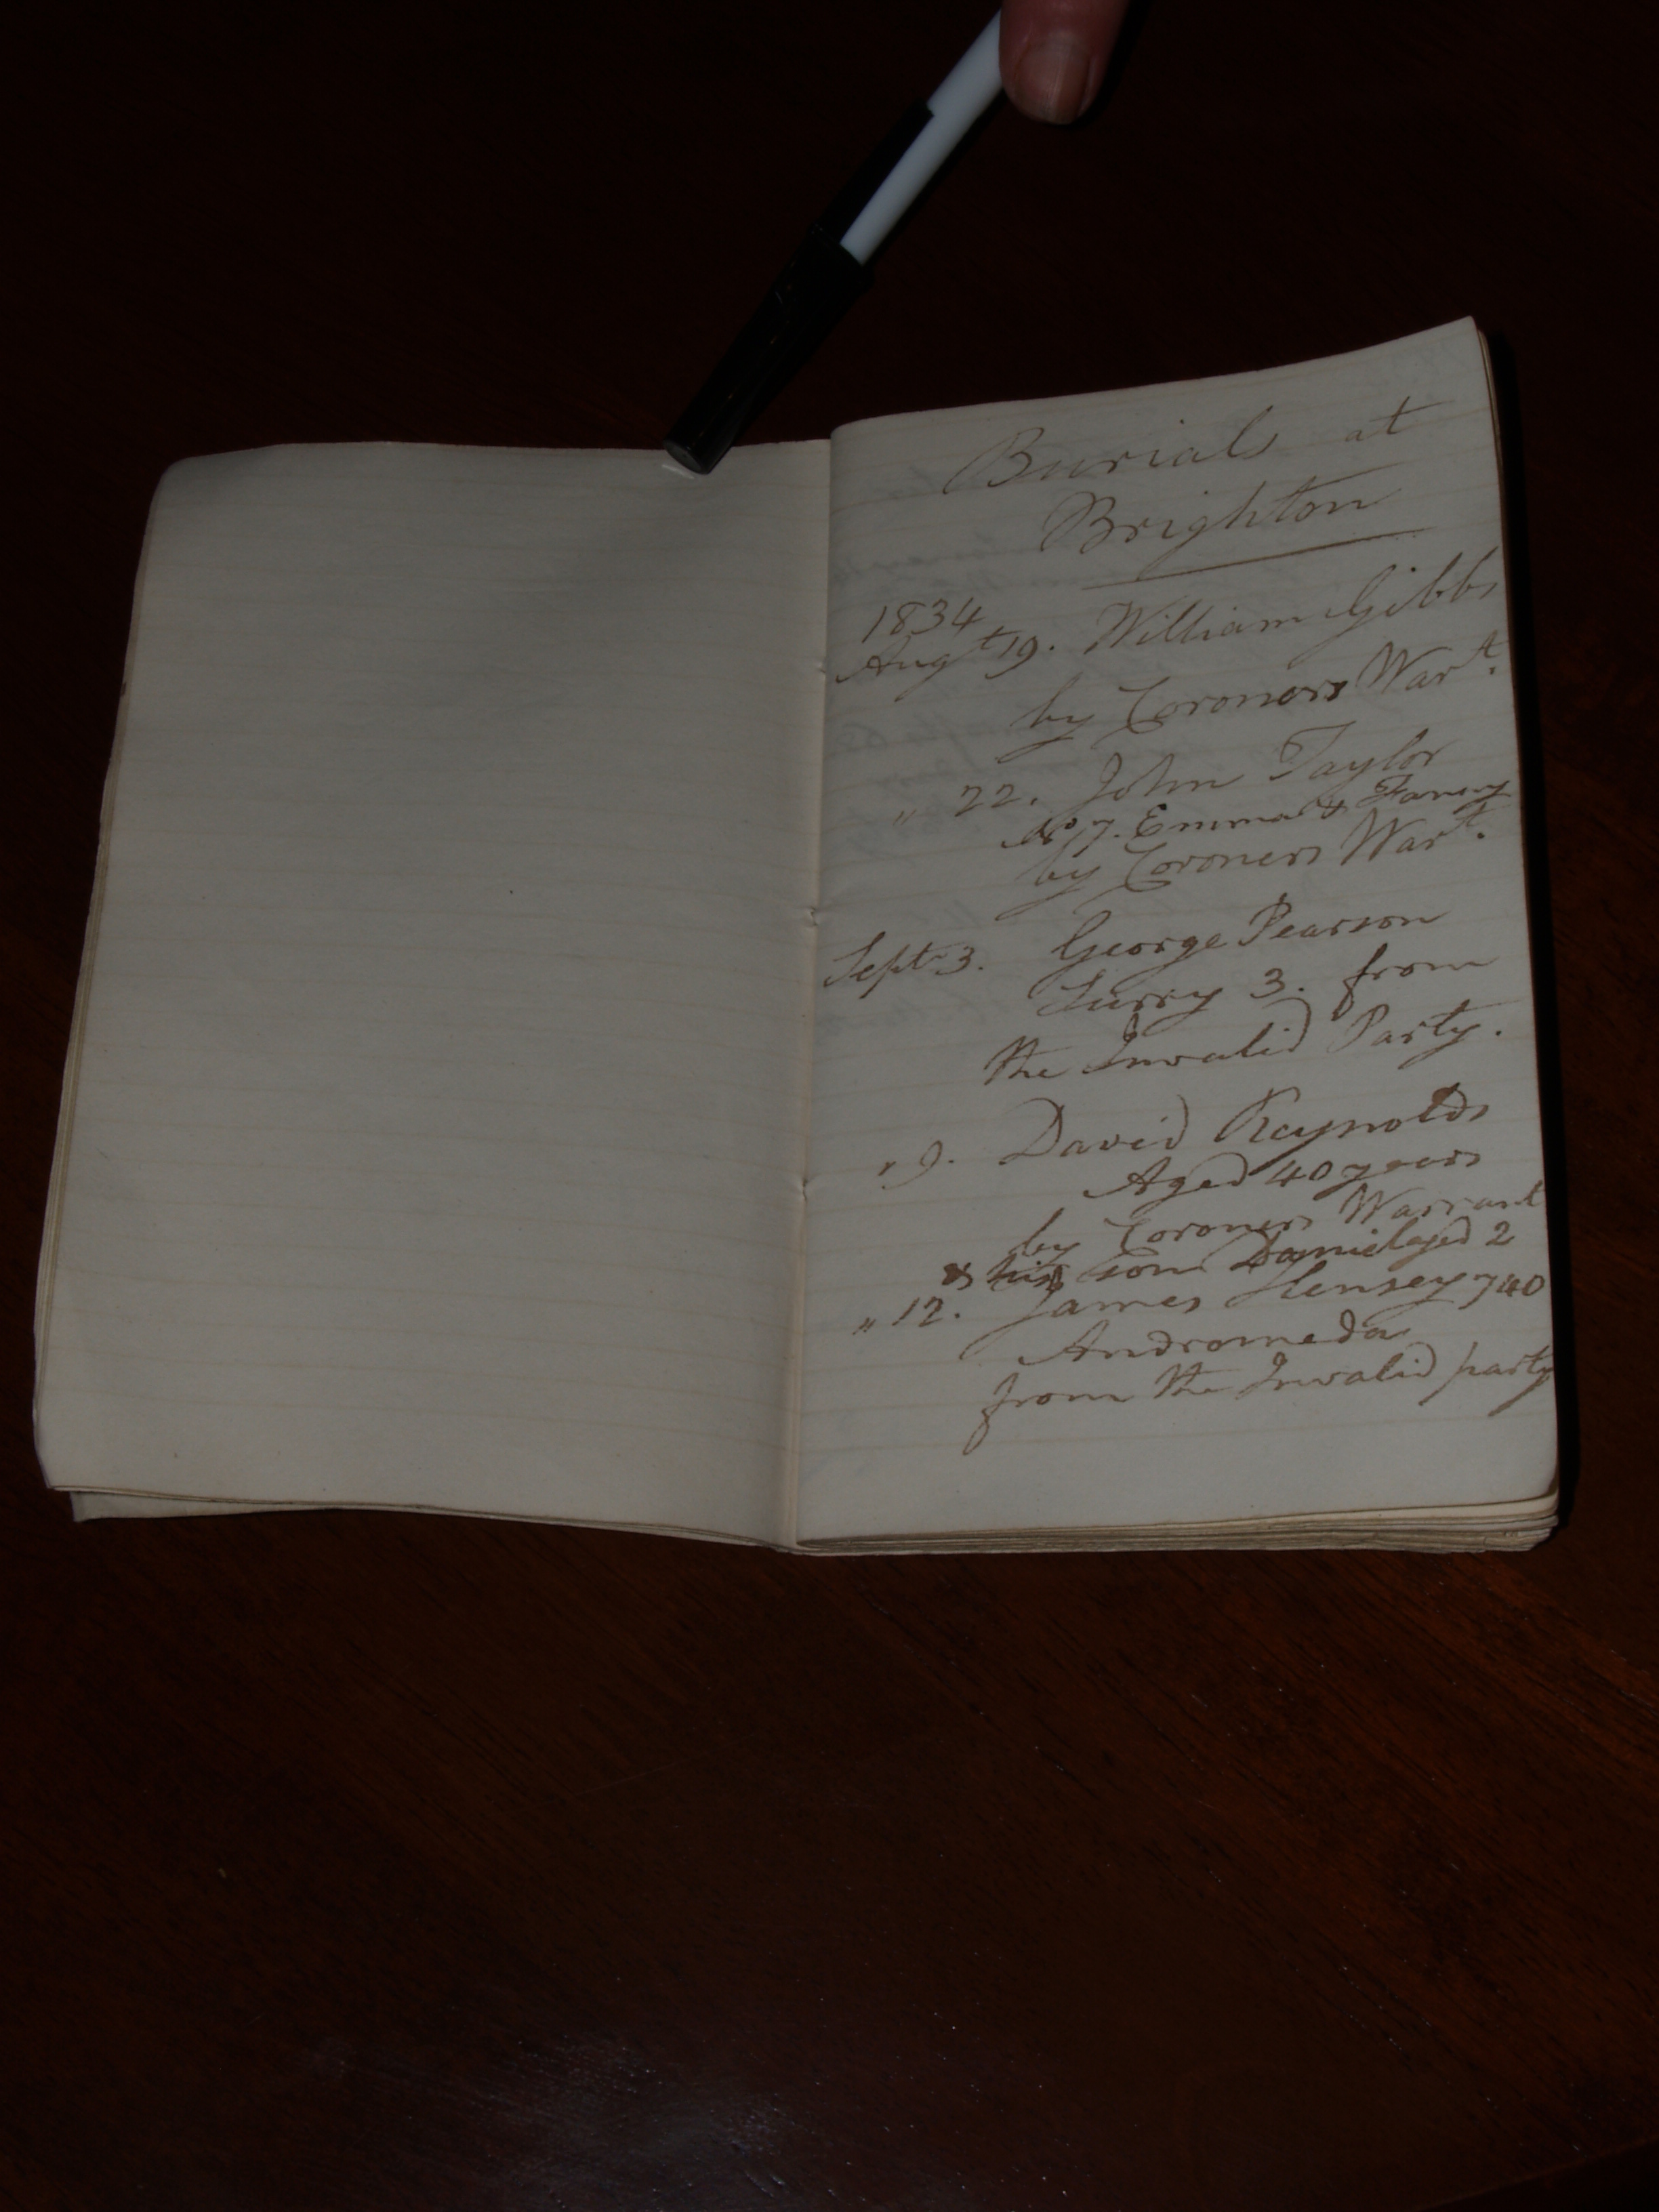 Burials at
Brighton
1834
Augt 19. William Gibbs
by Coroners Wart.
" 22. John Taylor
No 7. Emma &
by Coroners Wart.
Sept 3. George Pearson
Surry 3. from
the Invalid Party.
" 9. David Reynolds
Aged 40 years
by Coroners Warrant
& his son Daniel aged 2
" 12. James Hensey 740
Andromeda
from the Invalid party